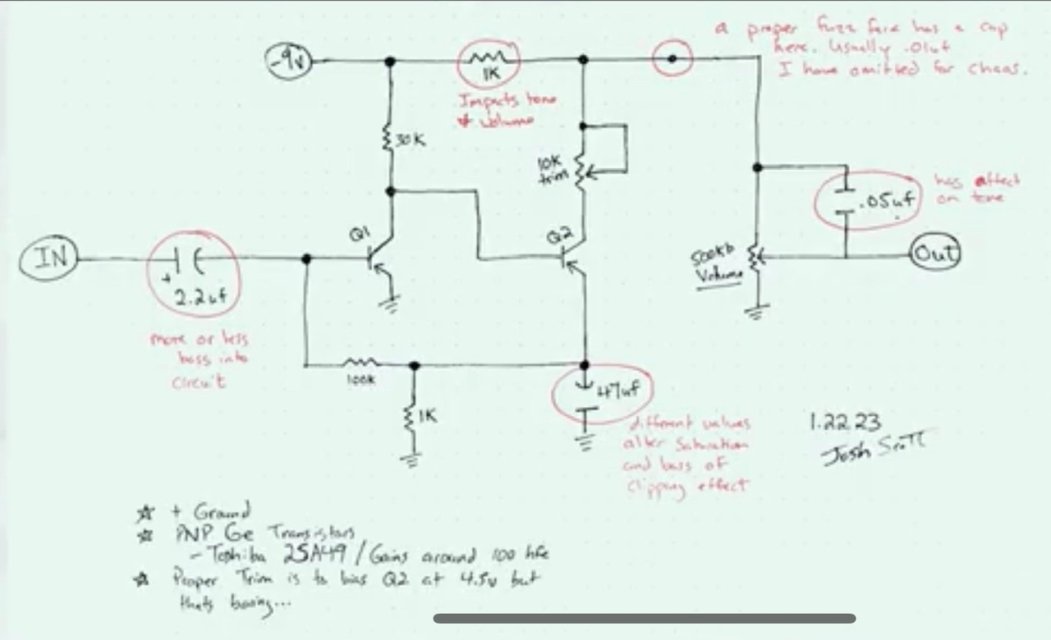 a proper fuzz face has a cap
here. Usually .01uf
I have omitted for chaos.
-9v
1K
Impacts tone
& volume
30K
10K
trim
.05uf
has affect
on tone
IN
Q1
Q2
500Kb
Volume
Out
+
2.2uf
more or less
bass into
circuit
100K
1K
47uf
different values
alter saturation
and bass of
clipping effect
1.22.23
Josh Scott
☆ + Ground
☆ PNP Ge Transistors
- Toshiba 2SA49 / Gains around 100 hfe
☆ Proper Trim is to bias Q2 at 4.5v but
thats boring...